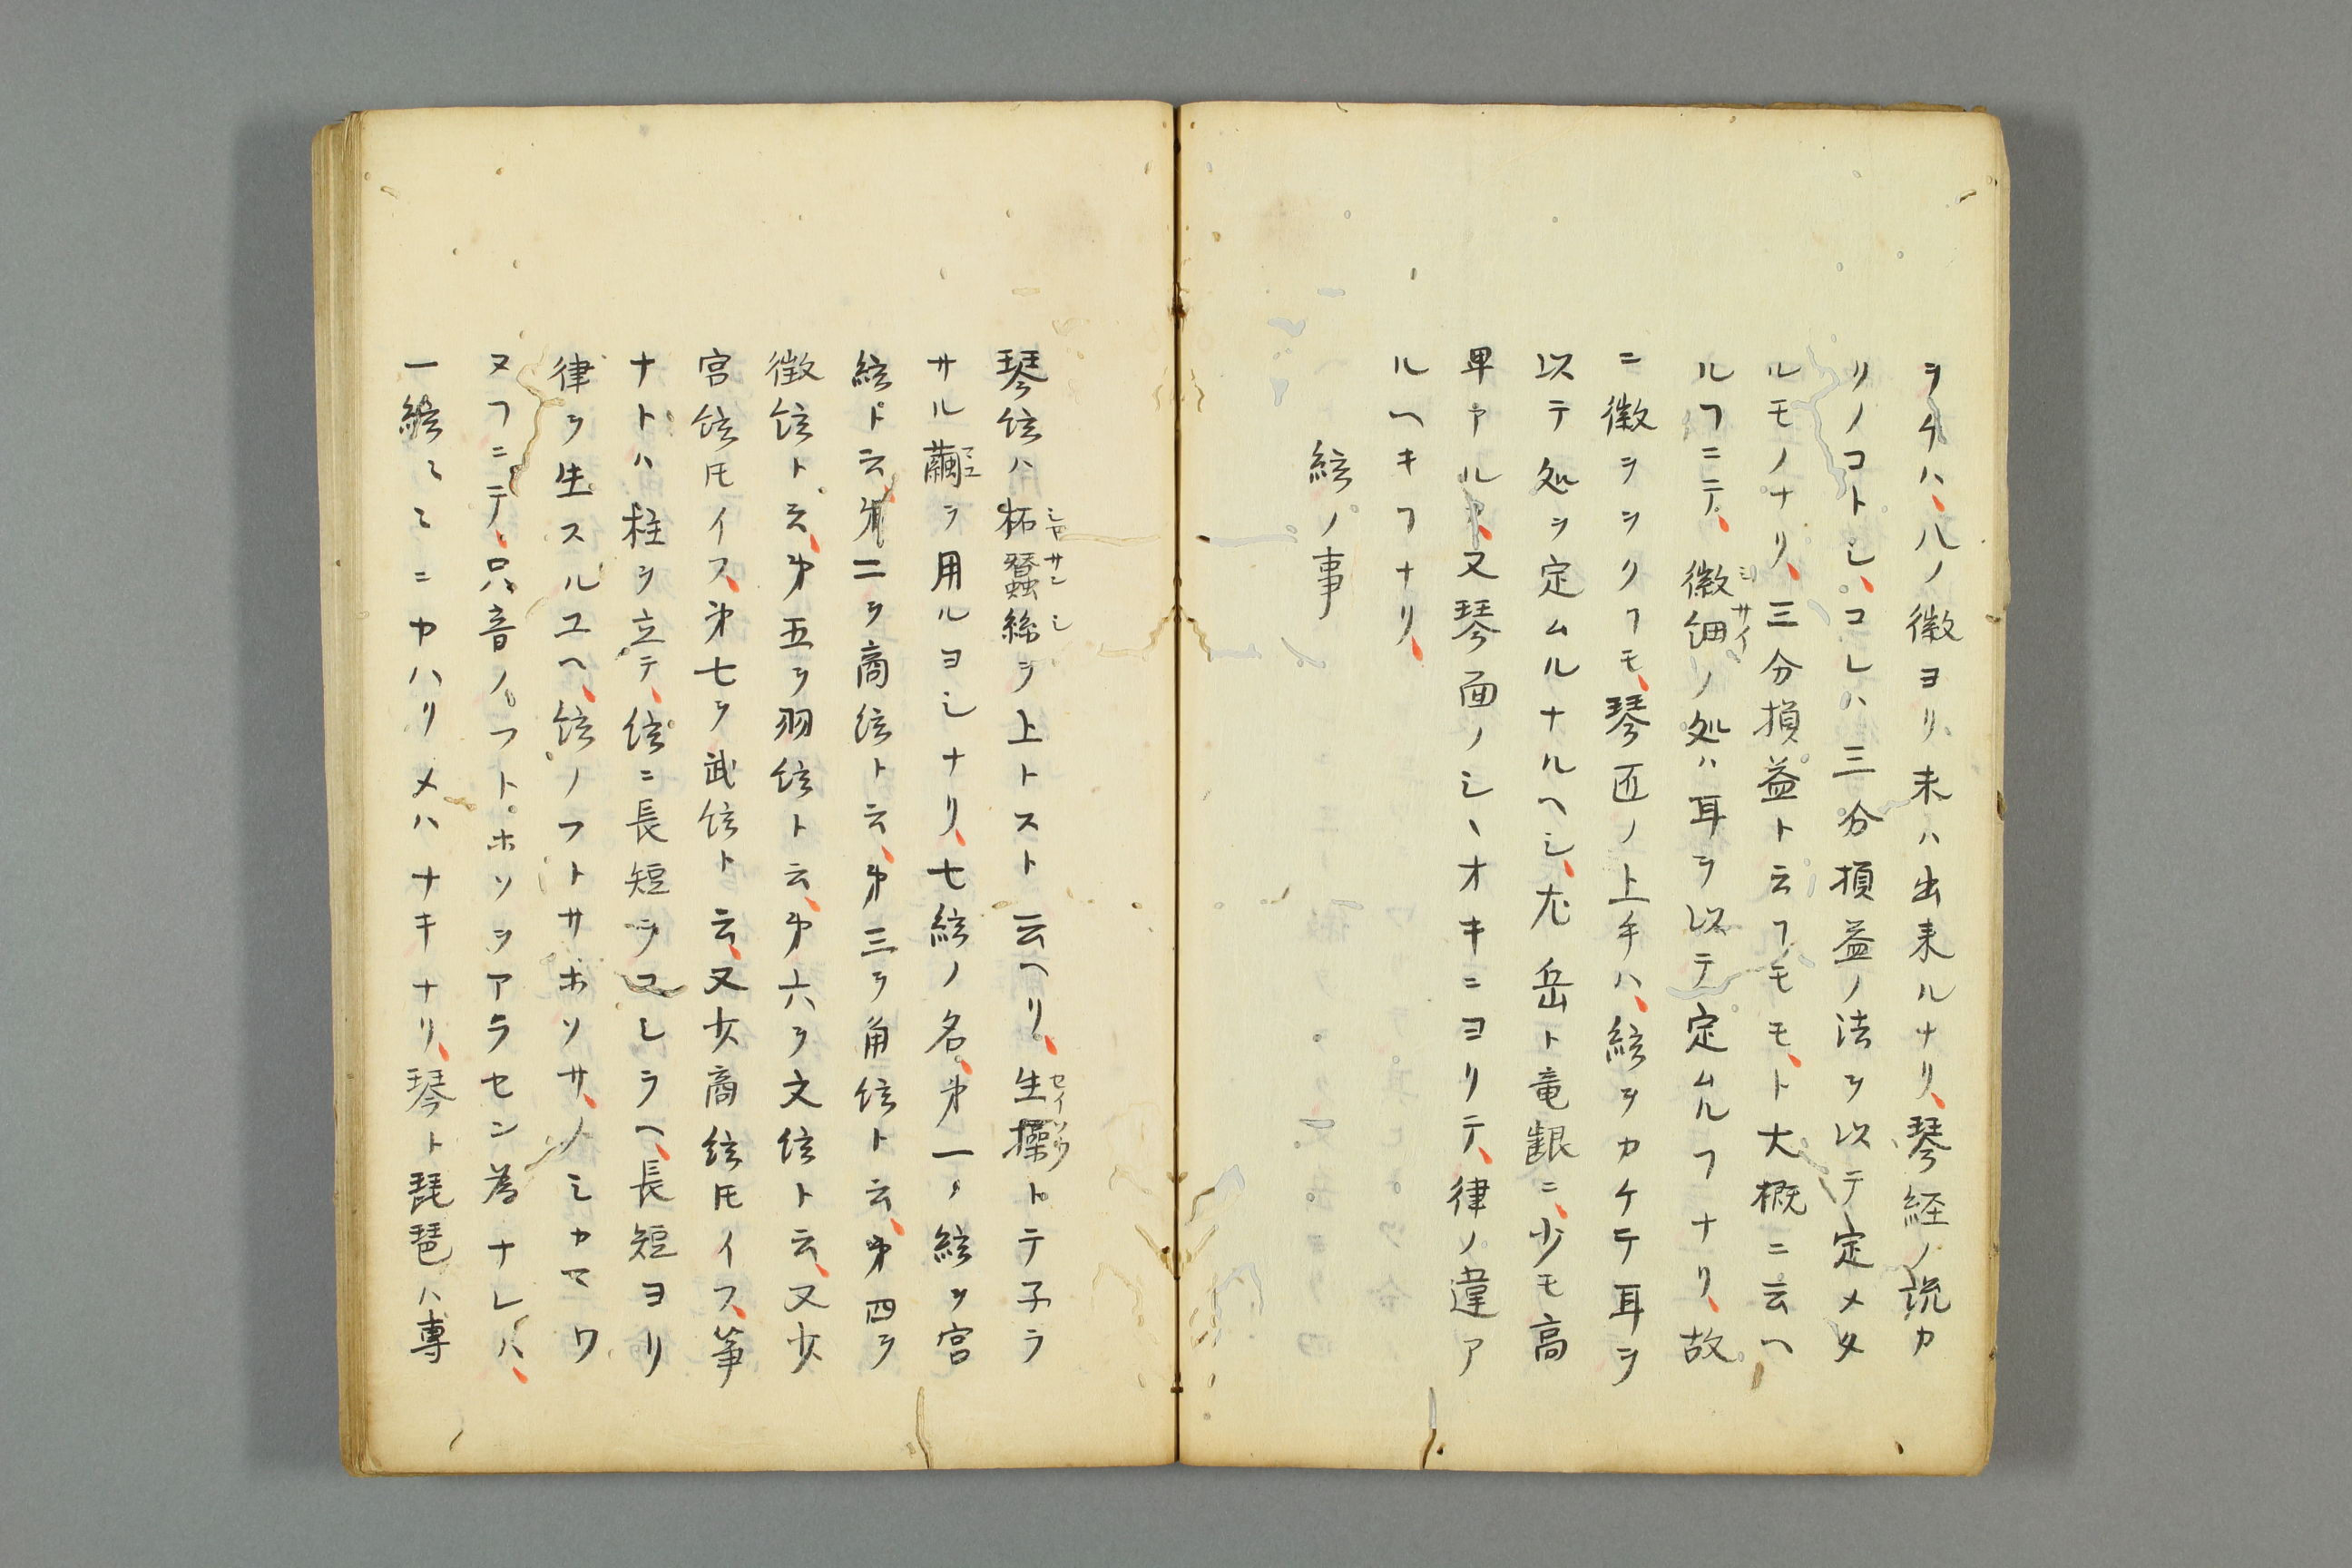 ヲケハ、八ノ徽ヨリ末ハ出来ルナリ、琴経ノ説カ
リノコトシ、コレハ三分損益ノ法ヲ以テ定メタ
ルモノナリ、三分損益ト云フモモ、ト大概ニ云ヘ
ルフニテ、徽細ノ処ハ耳ヲ以テ定ムルフナリ、故
ニ徽ヲシクフモ、琴匠ノ上手ハ、絃ヲカケテ耳ヲ
以テ処ヲ定ムルナルヘシ、尤岳ト竜齦ニ、少モ高
卑アルカ、又琴面ノシヽオキニヨリテ、律ノ違ア
ルヘキフナリ、
絃ノ事
琴絃ハ柘蠶絲ヲ上トスト云ヘリ、生操トテ子ラ
サル繭ヲ用ルヨシナリ、七絃ノ名、第一ノ絃ヲ宮
絃ト云、第二ヲ商絃ト云、第三ヲ角絃ト云、第四ヲ
徴絃ト云、第五ヲ羽絃ト云、第六ヲ文絃ト云、又少
宮絃圧イフ、第七ヲ武絃ト云、又少商絃圧イフ、筝
ナトハ柱ヲ立テ、絃ニ長短ヲコシラヘ、長短ヨリ
律ヲ生スルユヘ、絃ノフトサホソサノミカマワ
ヌフニテ、只音ノフトホソヲアラセン為ナレハ、
一絃ミミニカハリメハナキナリ、琴ト琵琶ハ専